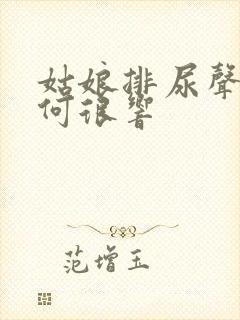 姑娘排尿聲
何很響
范增玉